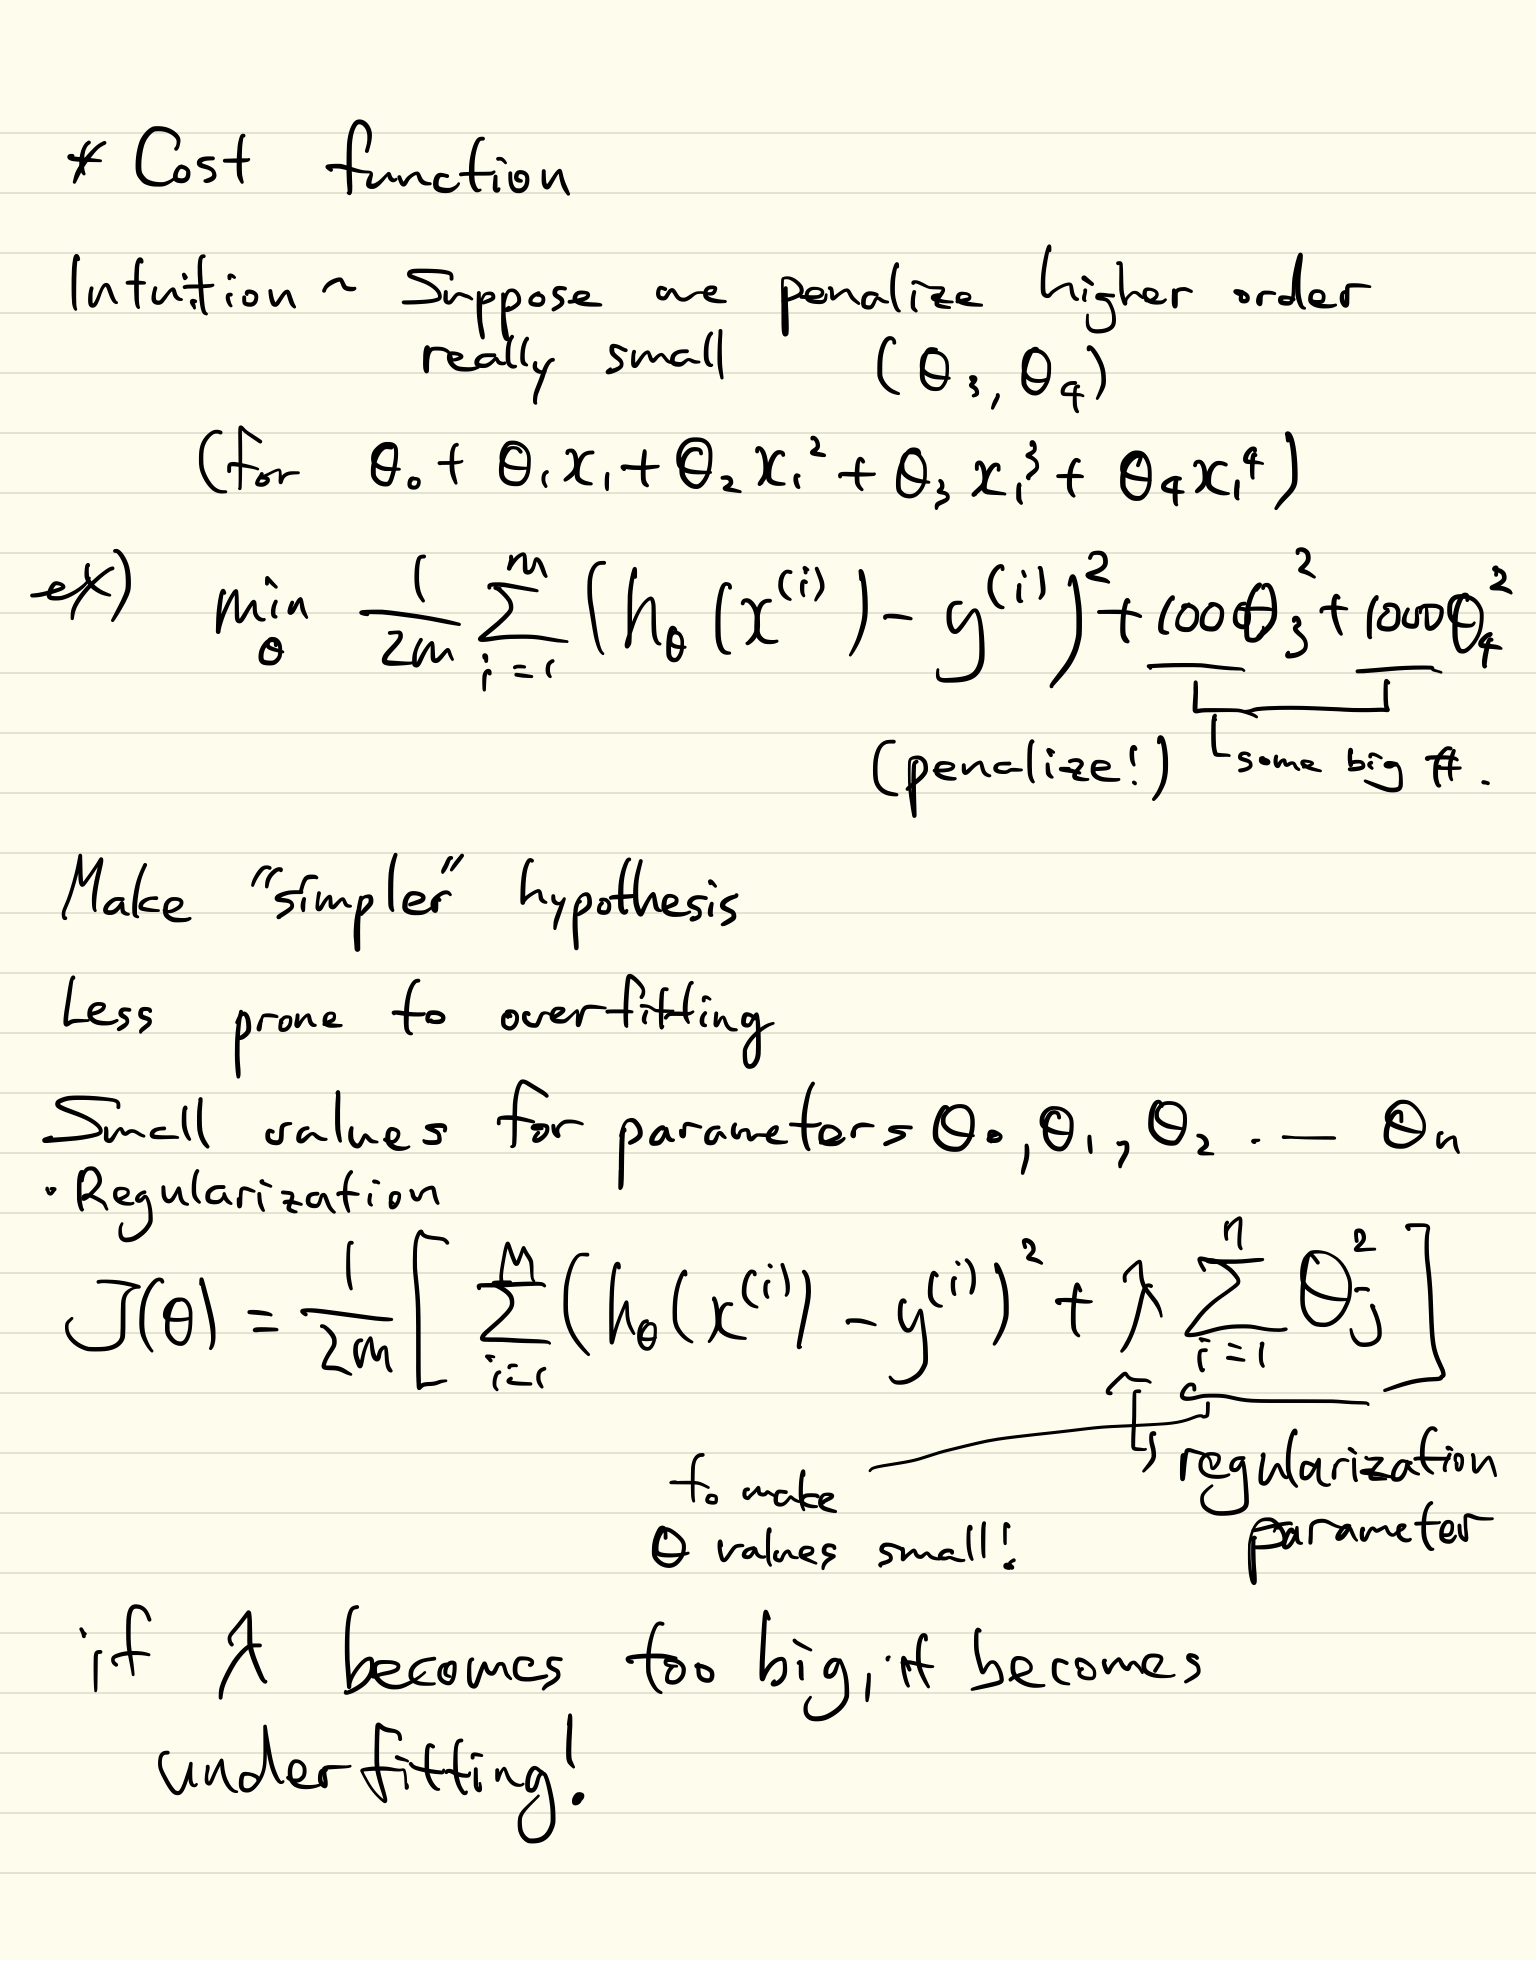 * Cost function
Intuition ~ Suppose we penalize higher order
really small (θ₃, θ₄)
(for θ₀ + θ₁x₁ + θ₂x₁² + θ₃x₁³ + θ₄x₁⁴)
ex) min_θ 1/2m Σ_{i=1}^{m} (h_θ(x^(i)) - y^(i))² + 1000θ₃² + 1000θ₄²
(penalize!) some big #.
Make "simpler" hypothesis
Less prone to overfitting
Small values for parameters θ₀, θ₁, θ₂ . — θₙ
· Regularization
J(θ) = 1/2m [ Σ_{i=1}^{m} (h_θ(x^(i)) - y^(i))² + λ Σ_{i=1}^{n} θ_j² ]
to make
θ values small!
regularization
parameter
if λ becomes too big, it becomes
underfitting!